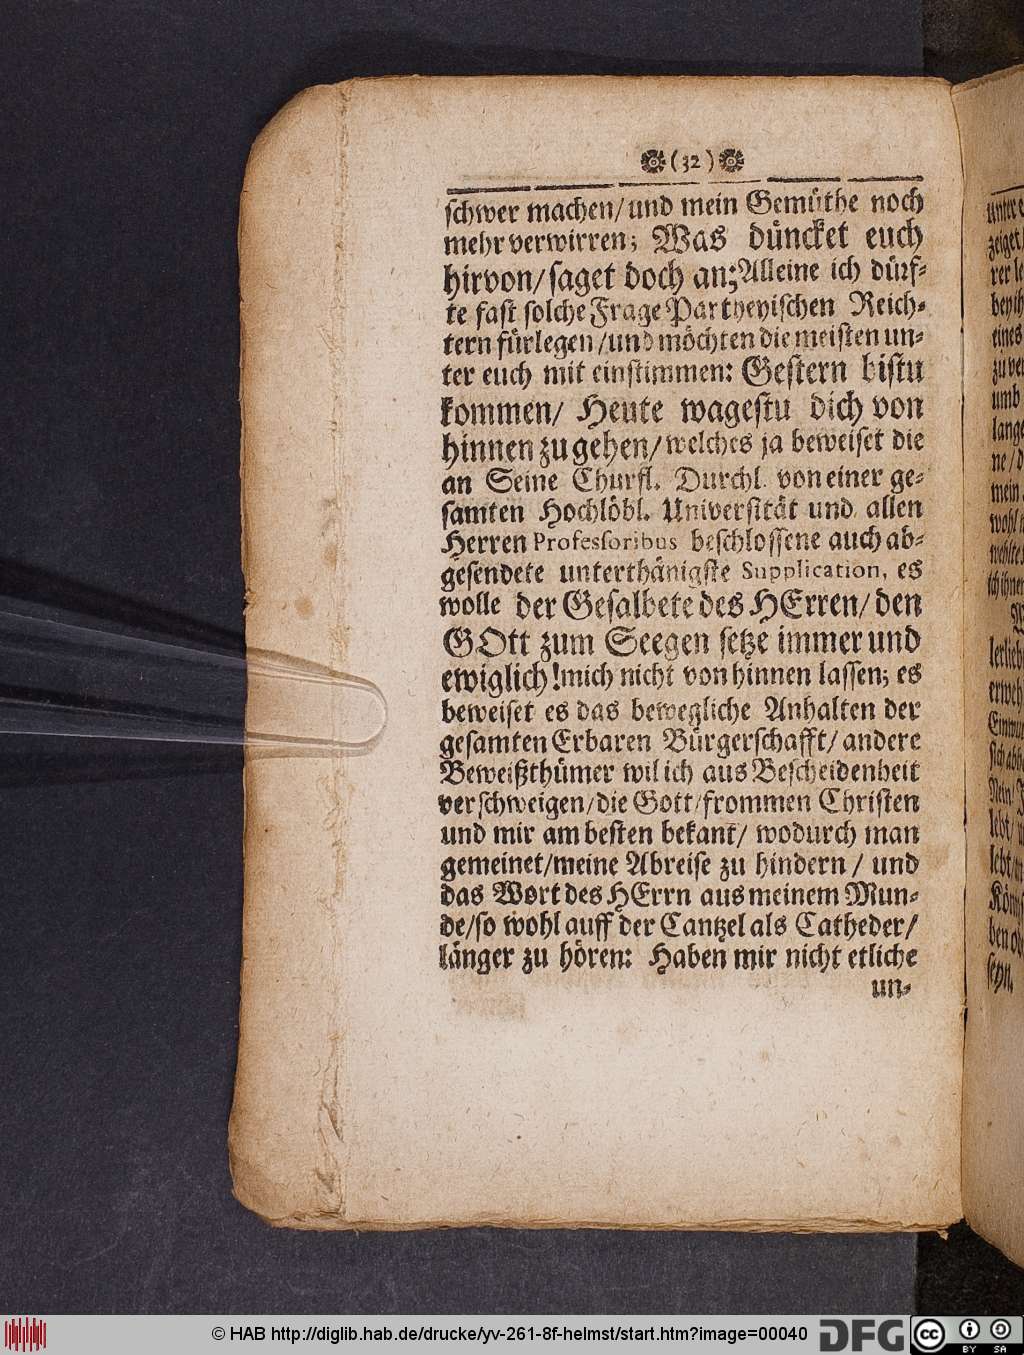 (32)
schwer machen/und mein Gemüthe noch
mehr verwirren; Was düncket euch
hirvon/saget doch an; Alleine ich dürf-
te fast solche Frage Partheyischen Reich-
tern fürlegen/und möchten die meisten un-
ter euch mit einstimmen: Gestern bistu
kommen/ Heute wagestu dich von
hinnen zu gehen/welches ja beweiset die
an Seine Churfl. Durchl. von einer ge-
samten Hochlöbl. Universität und allen
Herren Professoribus beschlossene auch ab-
gesendete unterthänigste Supplication, es
wolle der Gesalbete des HErren/den
GOtt zum Seegen setze immer und
ewiglich! mich nicht von hinnen lassen; es
beweiset es das bewegliche Anhalten der
gesamten Erbaren Bürgerschafft/andere
Beweißthümer wil ich aus Bescheidenheit
verschweigen/die Gott/frommen Christen
und mir am besten bekant/ wodurch man
gemeinet/meine Abreise zu hindern/ und
das Wort des HErrn aus meinem Mun-
de/so wohl auff der Cantzel als Catheder/
länger zu hören: Haben mir nicht etliche
un-
© HAB http://diglib.hab.de/drucke/yv-261-8f-helmst/start.htm?image=00040
DFG
cc BY SA